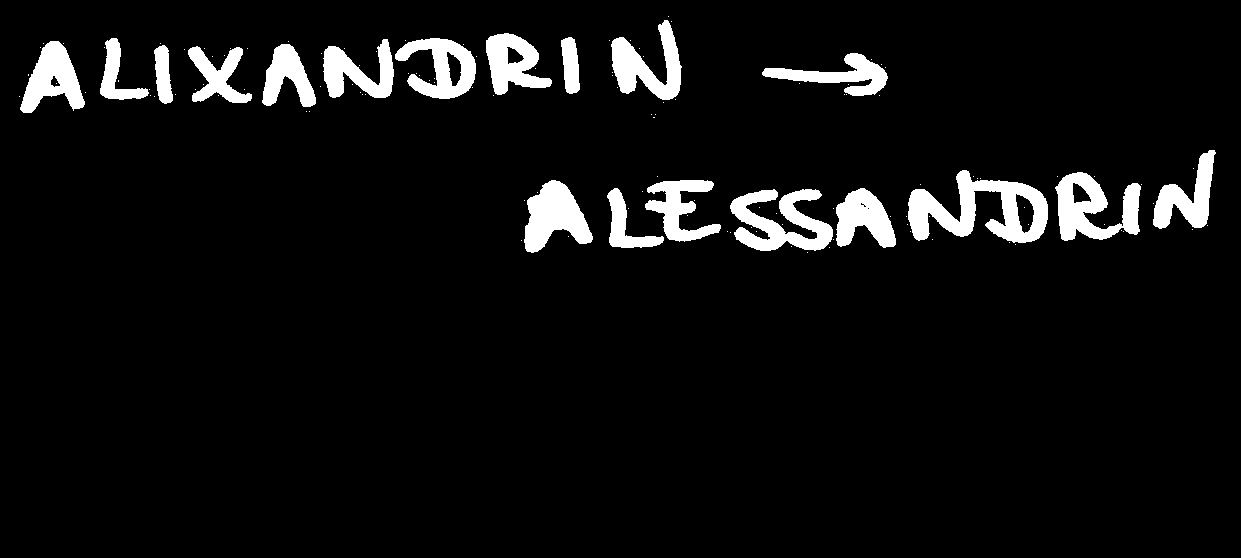 ALIXANDRIN →
ALESSANDRIN